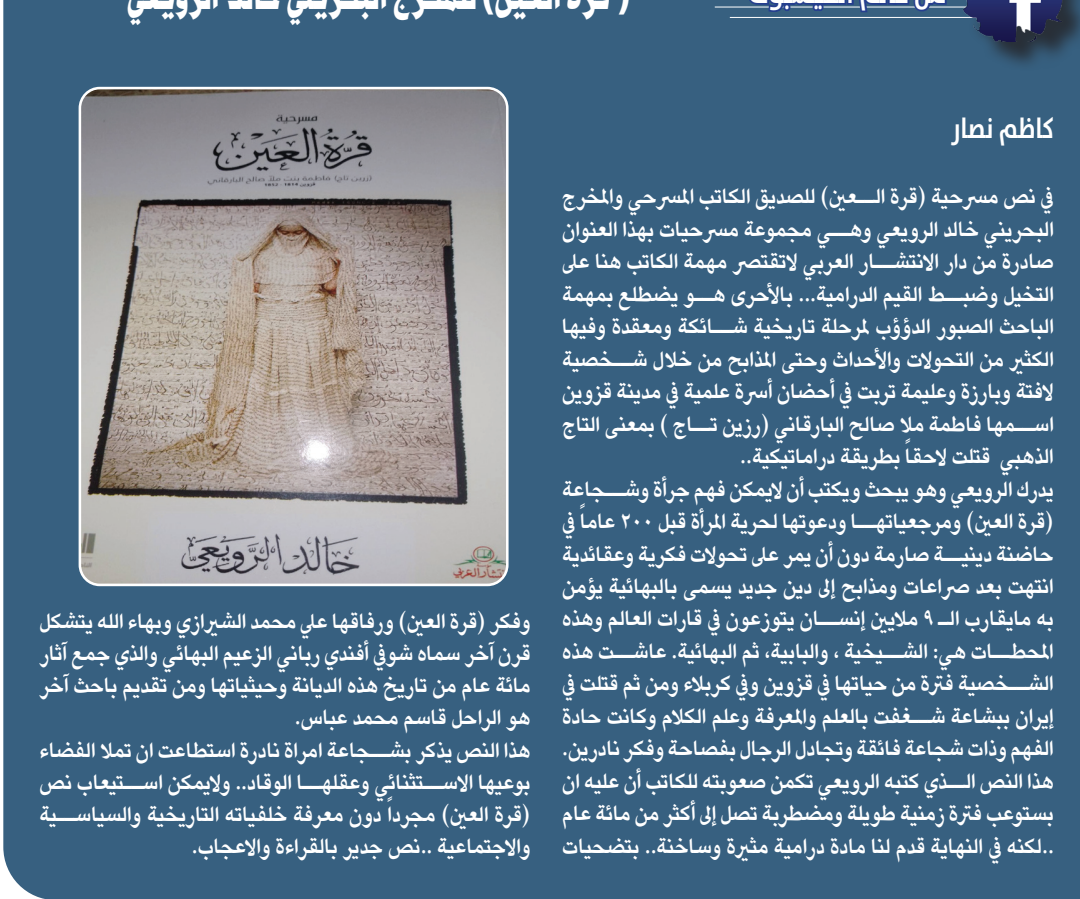 (قرة العين) للمخرج البحريني خالد الرويعي
كاظم نصار
في نص مسرحية (قرة العين) للصديق الكاتب المسرحي والمخرج
البحريني خالد الرويعي وهي مجموعة مسرحيات بهذا العنوان
صادرة من دار الانتشار العربي لاتقتصر مهمة الكاتب هنا على
التخيل وضبط القيم الدرامية... بالأحرى هو يضطلع بمهمة
الباحث الصبور الدؤؤب لمرحلة تاريخية شائكة ومعقدة وفيها
الكثير من التحولات والأحداث وحتى المذابح من خلال شخصية
لافتة وبارزة وعليمة تربت في أحضان أسرة علمية في مدينة قزوين
اسمها فاطمة ملا صالح البارقاني (رزين تاج ) بمعنى التاج
الذهبي قتلت لاحقاً بطريقة دراماتيكية..
يدرك الرويعي وهو يبحث ويكتب أن لايمكن فهم جرأة وشجاعة
(قرة العين) ومرجعياتها ودعوتها لحرية المرأة قبل ٢٠٠ عاماً في
حاضنة دينية صارمة دون أن يمر على تحولات فكرية وعقائدية
انتهت بعد صراعات ومذابح إلى دين جديد يسمى بالبهائية يؤمن
به مايقارب الـ ٩ ملايين إنسان يتوزعون في قارات العالم وهذه
المحطات هي: الشيخية ، والبابية، ثم البهائية. عاشت هذه
الشخصية فترة من حياتها في قزوين وفي كربلاء ومن ثم قتلت في
إيران ببشاعة شغفت بالعلم والمعرفة وعلم الكلام وكانت حادة
الفهم وذات شجاعة فائقة وتجادل الرجال بفصاحة وفكر نادرين.
هذا النص الذي كتبه الرويعي تكمن صعوبته للكاتب أن عليه ان
بستوعب فترة زمنية طويلة ومضطربة تصل إلى أكثر من مائة عام
..لكنه في النهاية قدم لنا مادة درامية مثيرة وساخنة.. بتضحيات
مسرحية
قُرَّةُ العَيْن
(زرين تاج) فاطمة بنت ملا صالح البارقاني
قزوين 1814 - 1852
خالد الرَّويَعي
وفكر (قرة العين) ورفاقها علي محمد الشيرازي وبهاء الله يتشكل
قرن آخر سماه شوفي أفندي رباني الزعيم البهائي والذي جمع آثار
مائة عام من تاريخ هذه الديانة وحيثياتها ومن تقديم باحث آخر
هو الراحل قاسم محمد عباس.
هذا النص يذكر بشجاعة امراة نادرة استطاعت ان تملا الفضاء
بوعيها الاستثنائي وعقلها الوقاد.. ولايمكن استيعاب نص
(قرة العين) مجرداً دون معرفة خلفياته التاريخية والسياسية
والاجتماعية ..نص جدير بالقراءة والاعجاب.